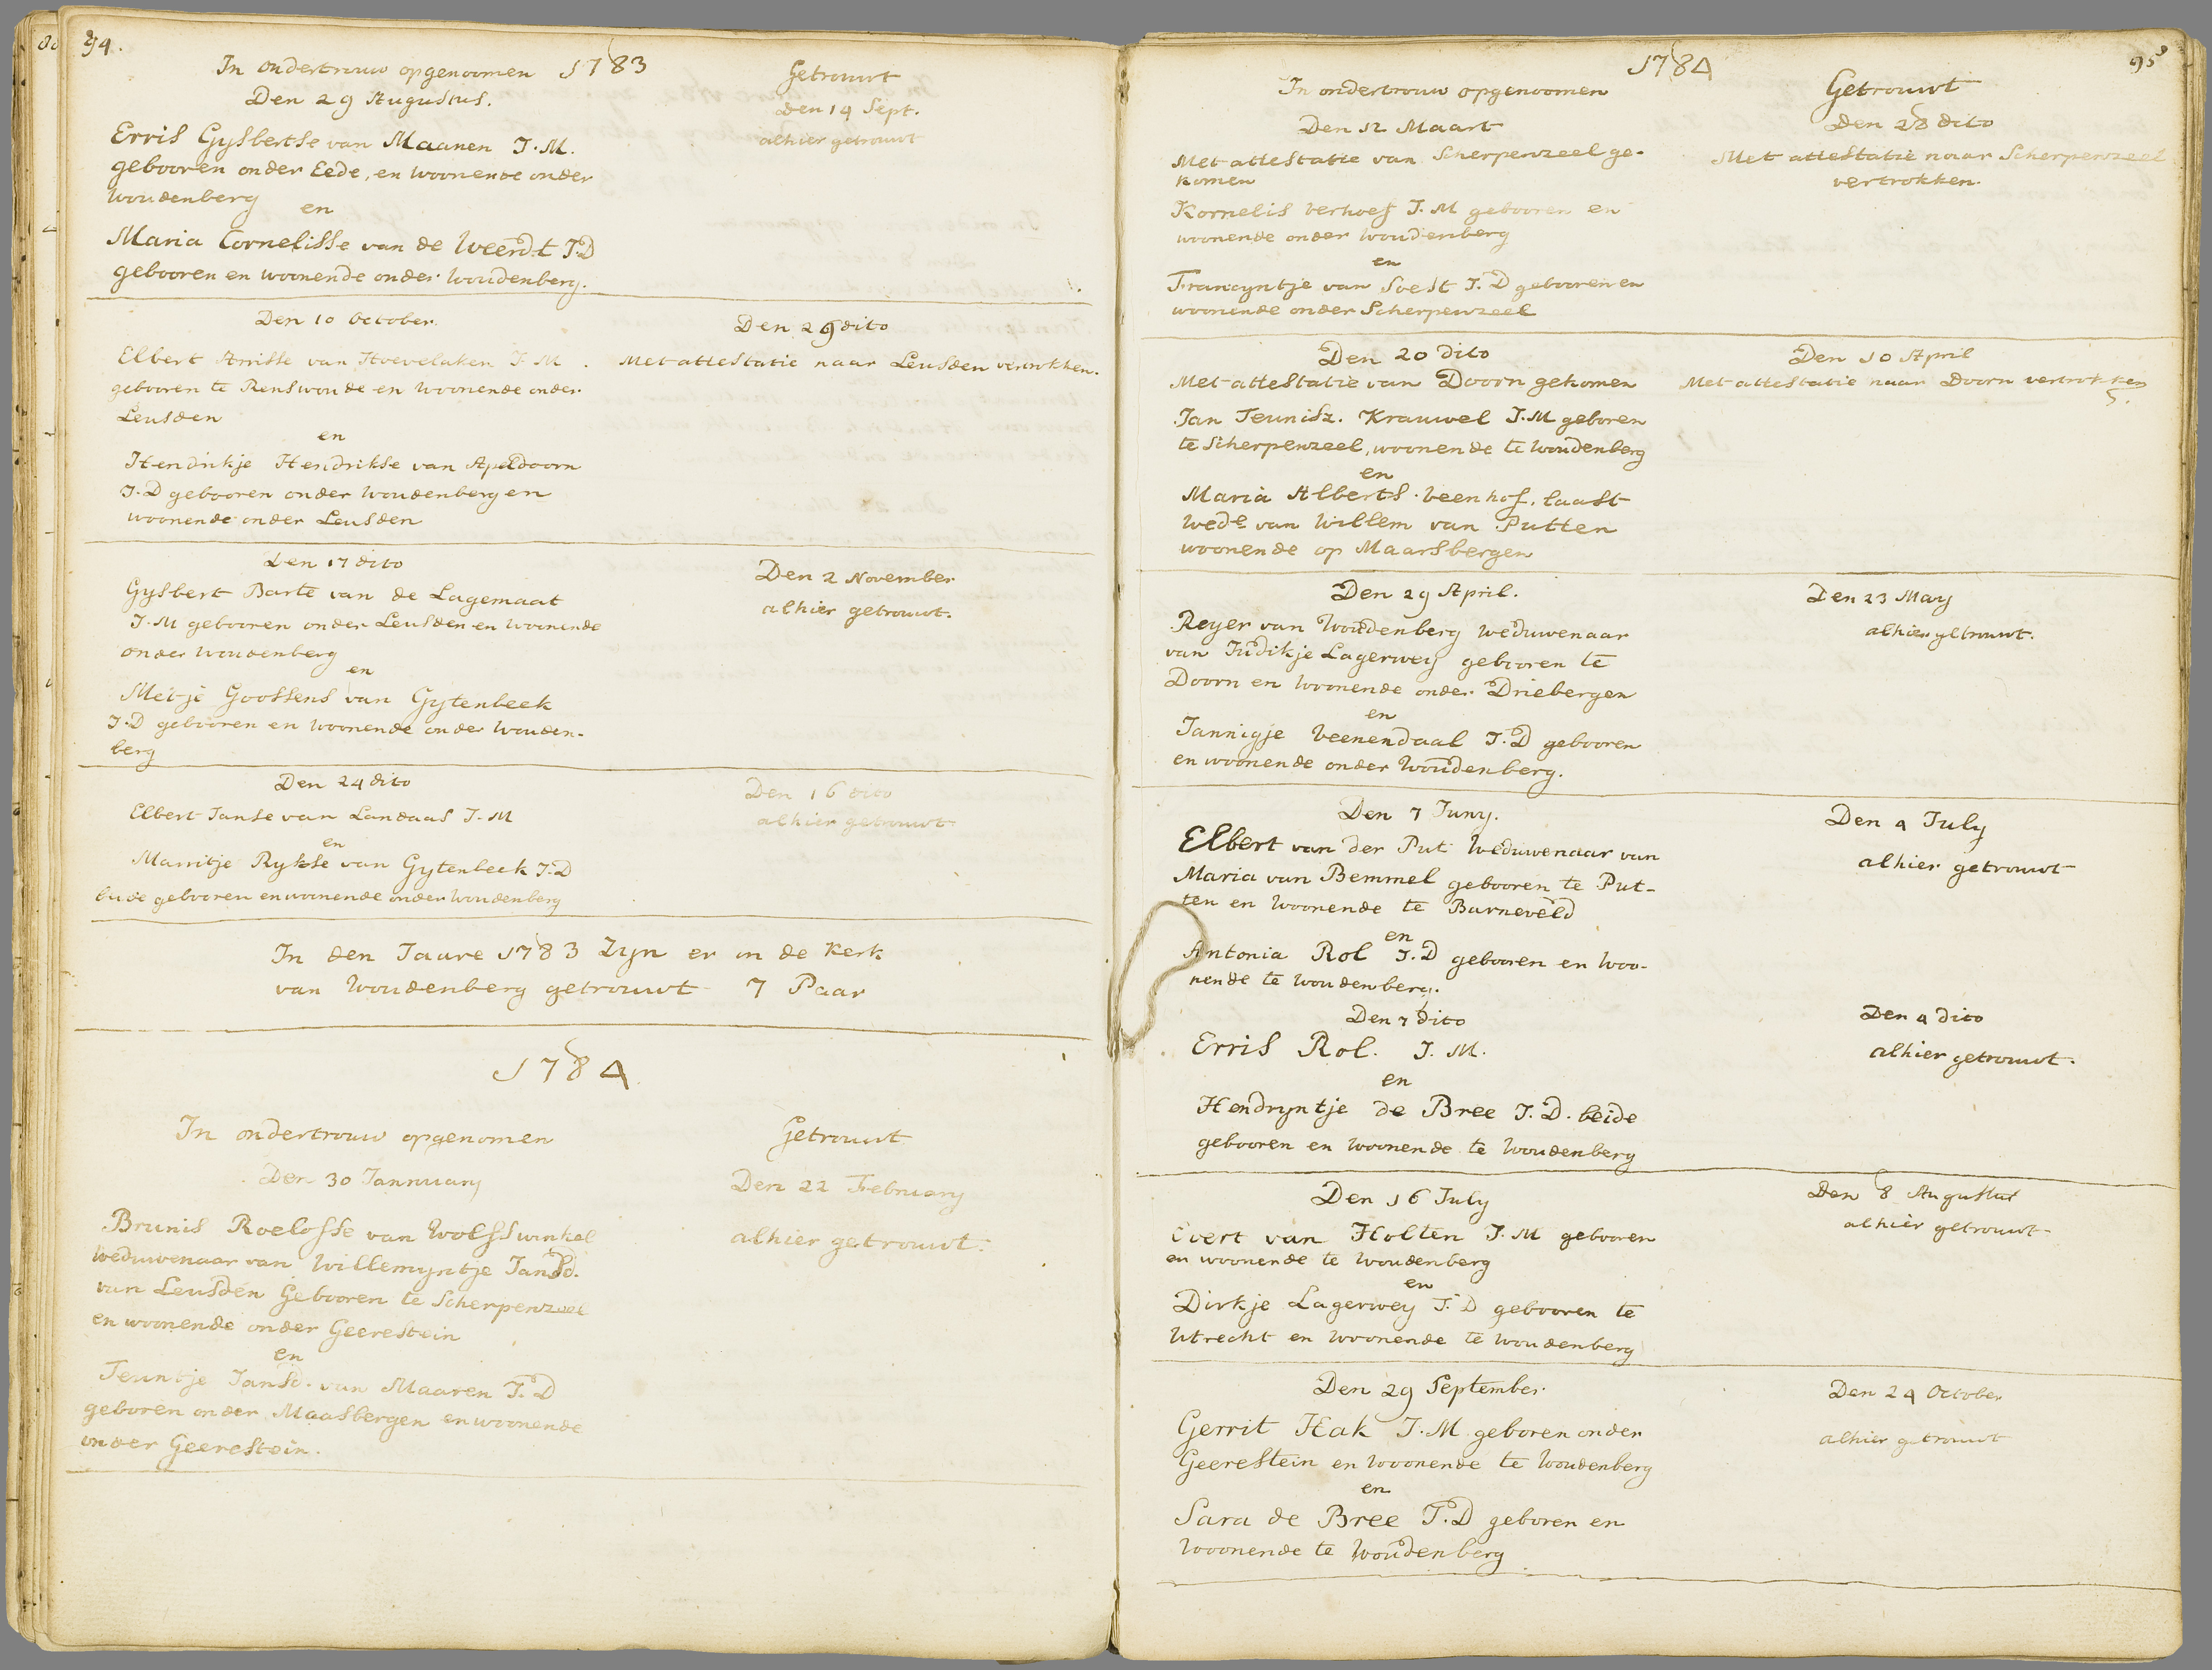 94.
In ondertrouw opgenoomen 1783
Getrouwt
Den 29 Augustus.
den 14 Sept.
alhier getrouwt
Erris Gysbertse van Maanen J.M.
gebooren onder Eede, en woonende onder
Woudenberg
en
Maria Cornelisse van de Weerdt J.D
gebooren en woonende onder Woudenberg.
Den 10 October.
Den 26 dito
Elbert Arrisse van Hoevelaken J M.
Met attestatie naar Leusden vertrokken.
gebooren te Renswoude en woonende onder
Leusden
en
Hendrikje Hendrikse van Apeldoorn
J.D gebooren onder Woudenberg en
woonende onder Leusden
Den 17 dito
Den 2 November
Gysbert Barte van de Lagemaat
alhier getrouwt.
J.M gebooren onder Leusden en woonende
onder Woudenberg
en
Metje Goossens van Gytenbeek
J.D gebooren en woonende onder Wouden-
berg
Den 24 dito
Den 16 dito
Elbert Janse van Landaas J.M
alhier getrouwt
en
Marritje Rykse van Gytenbeek J.D
beide gebooren en woonende onder Woudenberg
In den Jaare 1783 Zyn er in de Kerk
van Woudenberg getrouwt 7 Paar
1784
In ondertrouw opgenomen
Getrouwt
Den 30 Jannuary
Den 22 February
Brunis Roelofse van Wolfswinkel
alhier getrouwt.
weduwenaar van Willemyntje Jansd.
van Leusden Gebooren te Scherpenzeel
en woonende onder Geerestein
en
Teuntje Jansd. van Maaren J.D
geboren onder Maasbergen en woonende
onder Geerestein.
95
1784
In ondertrouw opgenoomen
Getrouwt
Den 12 Maart
Den 28 dito
Met attestatie van Scherpenzeel ge-
Met attestatie naar Scherpenzeel
komen
vertrokken.
Kornelis Verhoef J.M gebooren en
woonende onder Woudenberg
en
Francyntje van Soest J.D gebooren en
woonende onder Scherpenzeel
Den 20 dito
Den 10 April
Met attestatie van Doorn gekomen
Met attestatie naar Doorn vertrokken
Jan Teunisz. Krauwel J.M geboren
te Scherpenzeel, woonende te Woudenberg
en
Maria Alberts. Veenhof. laast
Wede van Willem van Putten
woonende op Maarsbergen
Den 29 April.
Den 23 May
Reyer van Woudenberg weduwenaar
alhier getrouwt.
van Judikje Lagerwey gebooren te
Doorn en Woonende onder Driebergen
en
Jannigje Veenendaal J.D gebooren
en woonende onder Woudenberg.
Den 7 Juny.
Den 4 July
Elbert van der Put Weduwenaar van
alhier getrouwt
Maria van Bemmel gebooren te Put-
ten en Woonende te Barneveld
en
Antonia Rol J.D gebooren en Woo-
nende te Woudenberg.
Den 7 dito
Den 4 dito
Erris Rol. J.M.
alhier getrouwt.
en
Hendryntje de Bree J.D. beide
gebooren en woonende te Woudenberg
Den 16 July
Den 8 Augustus
Evert van Holten J.M gebooren
alhier getrouwt
en woonende te Woudenberg
en
Dirkje Lagerwey J.D gebooren te
Utrecht en Woonende te Woudenberg
Den 29 September.
Den 24 October
Gerrit Hak J.M geboren onder
alhier getrouwt
Geerestein en Woonende te Woudenberg
en
Sara de Bree J.D geboren en
Woonende te Woudenberg